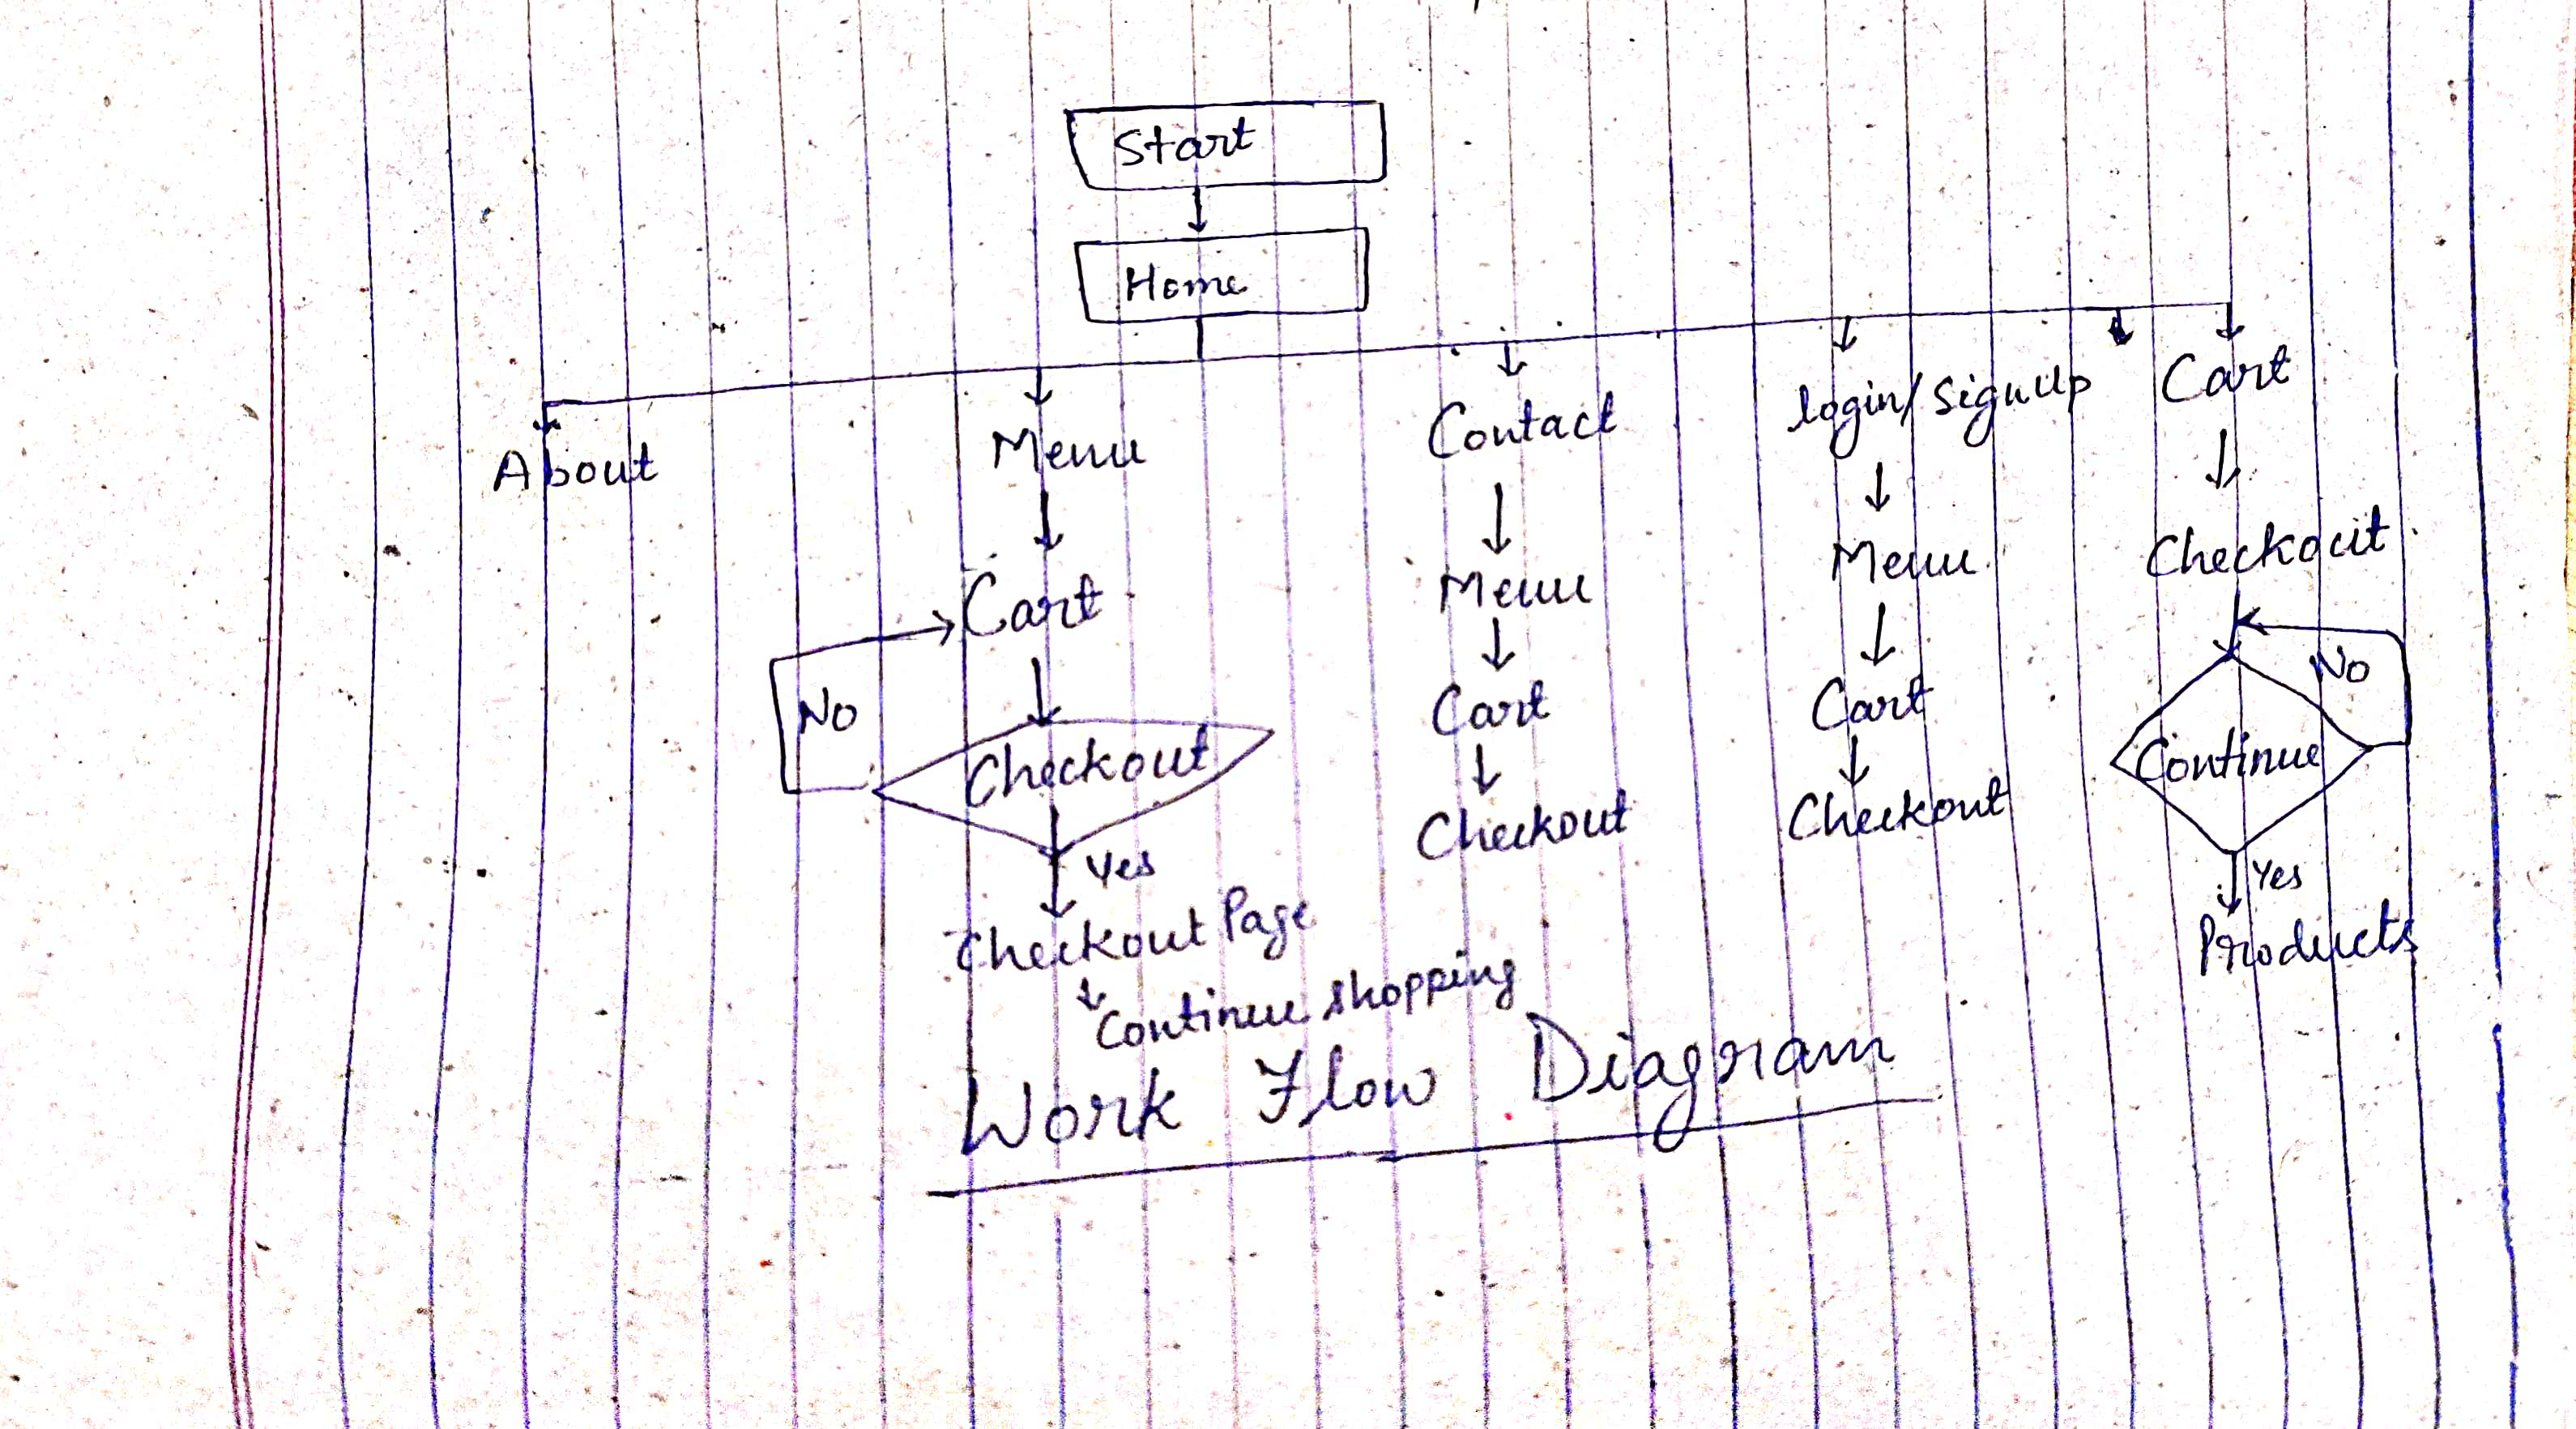 Start
Home
About
Menu
Cart
No
Checkout
Yes
Checkout Page
Continue shopping
Contact
Menu
Cart
Checkout
login/SignUp
Menu
Cart
Checkout
Cart
Checkout
No
Continue
Yes
Products
Work Flow Diagram